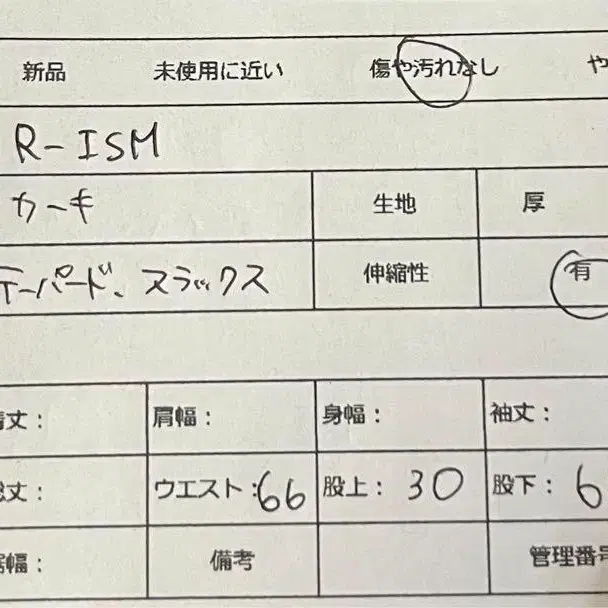 新品 未使用に近い 傷や汚れなし や
R-ISM
カーキ 生地 厚
テーパード、スラックス 伸縮性 有
丈: 肩幅: 身幅: 袖丈:
丈: ウエスト:66 股上: 30 股下: 6
幅: 備考 管理番号